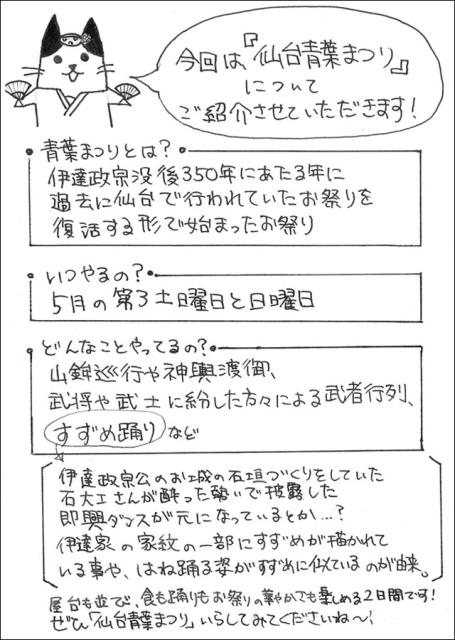 今回は、『仙台青葉まつり』
について
ご紹介させていただきます!
青葉まつりとは?
伊達政宗没後350年にあたる年に
過去に仙台で行われていたお祭りを
復活する形で始まったお祭り
いつやるの?
5月の第3土曜日と日曜日
どんなことやってるの?
山鉾巡行や神輿渡御、
武将や武士に紛した方々による武者行列、
すずめ踊りなど
伊達政宗公のお城の石垣づくりをしていた
石大工さんが酔った勢いで披露した
即興ダンスが元になっているとか…?
伊達家の家紋の一部にすずめが描かれて
いる事や、はね踊る姿がすずめに似ているのが由来。
屋台も並び、食も踊りもお祭りの華やかさも楽しめる2日間です!
ぜひ「仙台青葉まつり」いらしてみてくださいね〜!